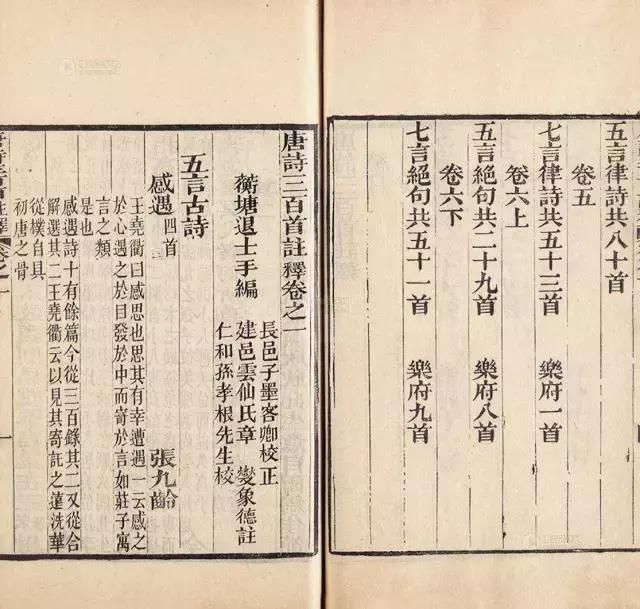 五言律詩共八十首
卷五
七言律詩共五十三首 樂府一首
卷六上
五言絕句共二十九首 樂府八首
卷六下
七言絕句共五十一首 樂府九首
唐詩三百首註釋卷之一
蘅塘退士手編
長邑子墨客卿校正
建邑雲仙氏章 燮象德註
仁和孫孝根先生校
五言古詩
感遇四首 張九齡
王堯衢曰感思也思其有幸遭遇一云感之
於心遇之於目發於中而寄於言如莊子寓
言之類
是也
感遇詩十有餘篇今從三百錄其二又從合
解選其二王堯衢云以見其寄託之遠洗華
從樸自具
初唐之骨